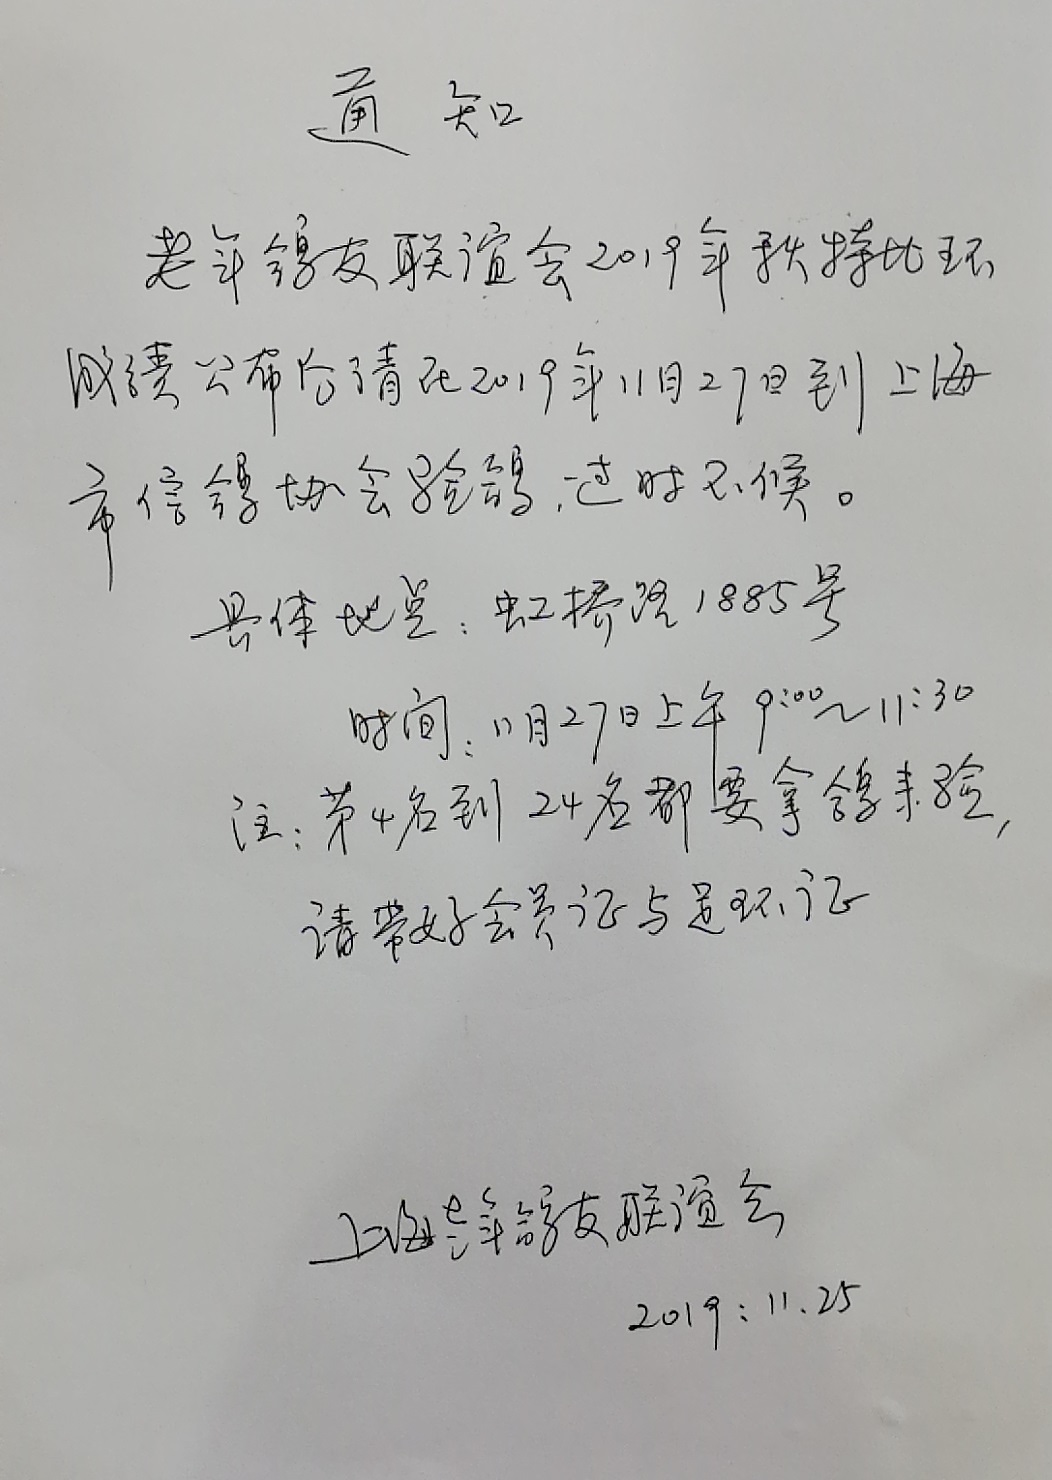 通知
老年鸽友联谊会2019年秋特比环
成绩公布后请在2019年11月27日到上海
市信鸽协会验鸽,过时不候。
具体地点:虹桥路1885号
时间:11月27日上午9:00~11:30
注:第4名到24名都要拿鸽来验,
请带好会员证与足环证
上海老年鸽友联谊会
2019:11.25